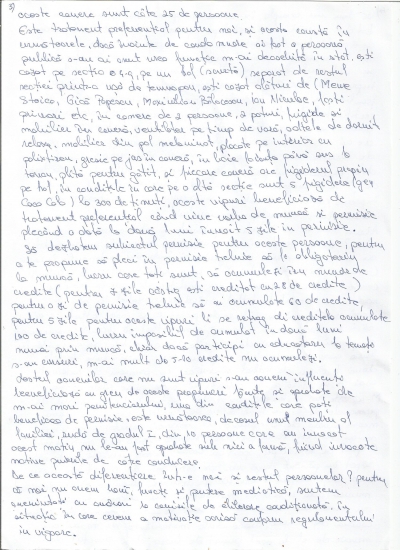 3)
aceste camere sunt câte 25 de persoane.
Este tratament preferențial pentru noi, și aceste constă în
următoarele, dacă înainte de condamnare ai fost o persoană
publică s-au ai avut vreo funcție m-ai deosebită în stat, ești
cazat pe secție e4.4, pe un hol (scurtă) separat de restul
secției printr-o ușă de termopan, ești cazat alături de (Meme
Stoica, Gică Popescu, Maximilian Bălășescu, Ion Niculae, foști
primari etc, în camere de 2 persoane, 2 paturi, frigider și
mobilier în cameră, ventilator pe timp de vară, saltele de dormit
relaxa, mobilier din pal melaminat, placate pe interior cu
polistiren, gresie pe jos în cameră, în baie faianță până sus la
tavan, plită pentru gătit, și fiecare cameră are frigiderul propriu
pe hol, în condițiile în care pe o altă secție sunt 5 frigidere (gen
Coca Cola) la 300 deținuți, aceste vipuri beneficiază de
tratament preferențial când vine vorba de muncă și permisie
plecând o dată la două luni învoit 5 zile în permisie.
Să dezbatem subiectul permisie pentru aceste persoane, pentru
a te propune să pleci în permisie trebuie să fi obligatoriu
la muncă, lucru care toți sunt, să acumulezi un număr de
credite (pentru 7 zile câștig ești creditat cu 28 de credite)
pentru o zi de permisie trebuie să ai cumulate 60 de credite,
pentru 5 zile pentru aceste vipuri li se retrag din creditele acumulate
100 de credite, lucru imposibil de acumulat în două luni
numai prin muncă, chiar dacă participi cu educatoru la toate
s-au cursuri, m-ai mult de 5-10 credite nu acumulezi.
Restul oamenilor care nu sunt vipuri s-au oameni influenți
beneficiază cu greu de aceste propuneri făcute și aprobate de
m-ai marii penitenciarului, una din condițiile care poți
beneficia de permisie, este următoarea, decesul unui membru al
familiei, rudă de gradul I, din 10 persoane care au invocat
acest motiv nu le-au fost aprobate sub nici o formă, fiind invocate
motive puerile de către conducere.
De ce această diferențiere într-e noi și restul persoanelor? pentru
că noi nu avem bani, funcție și putere mediatică, suntem
amenințați cu amânări la comisiile de eliberare condiționată, în
situația în care cerem a motivație scrisă conform regulamentului
în vigoare.